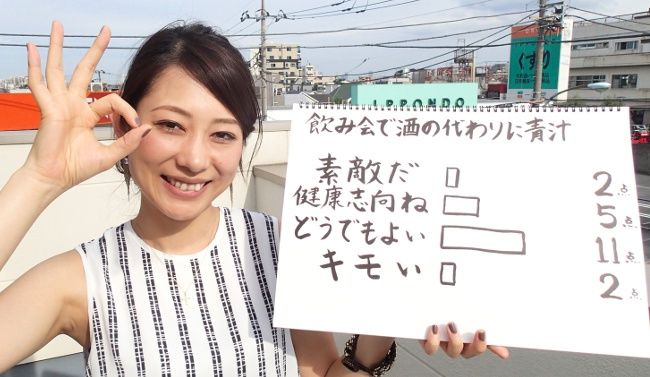 飲み会で酒の代わりに青汁
素敵だ 2点
健康志向ね 5点
どうでもよい 11点
キモい 2点
IPPONDO
くすり